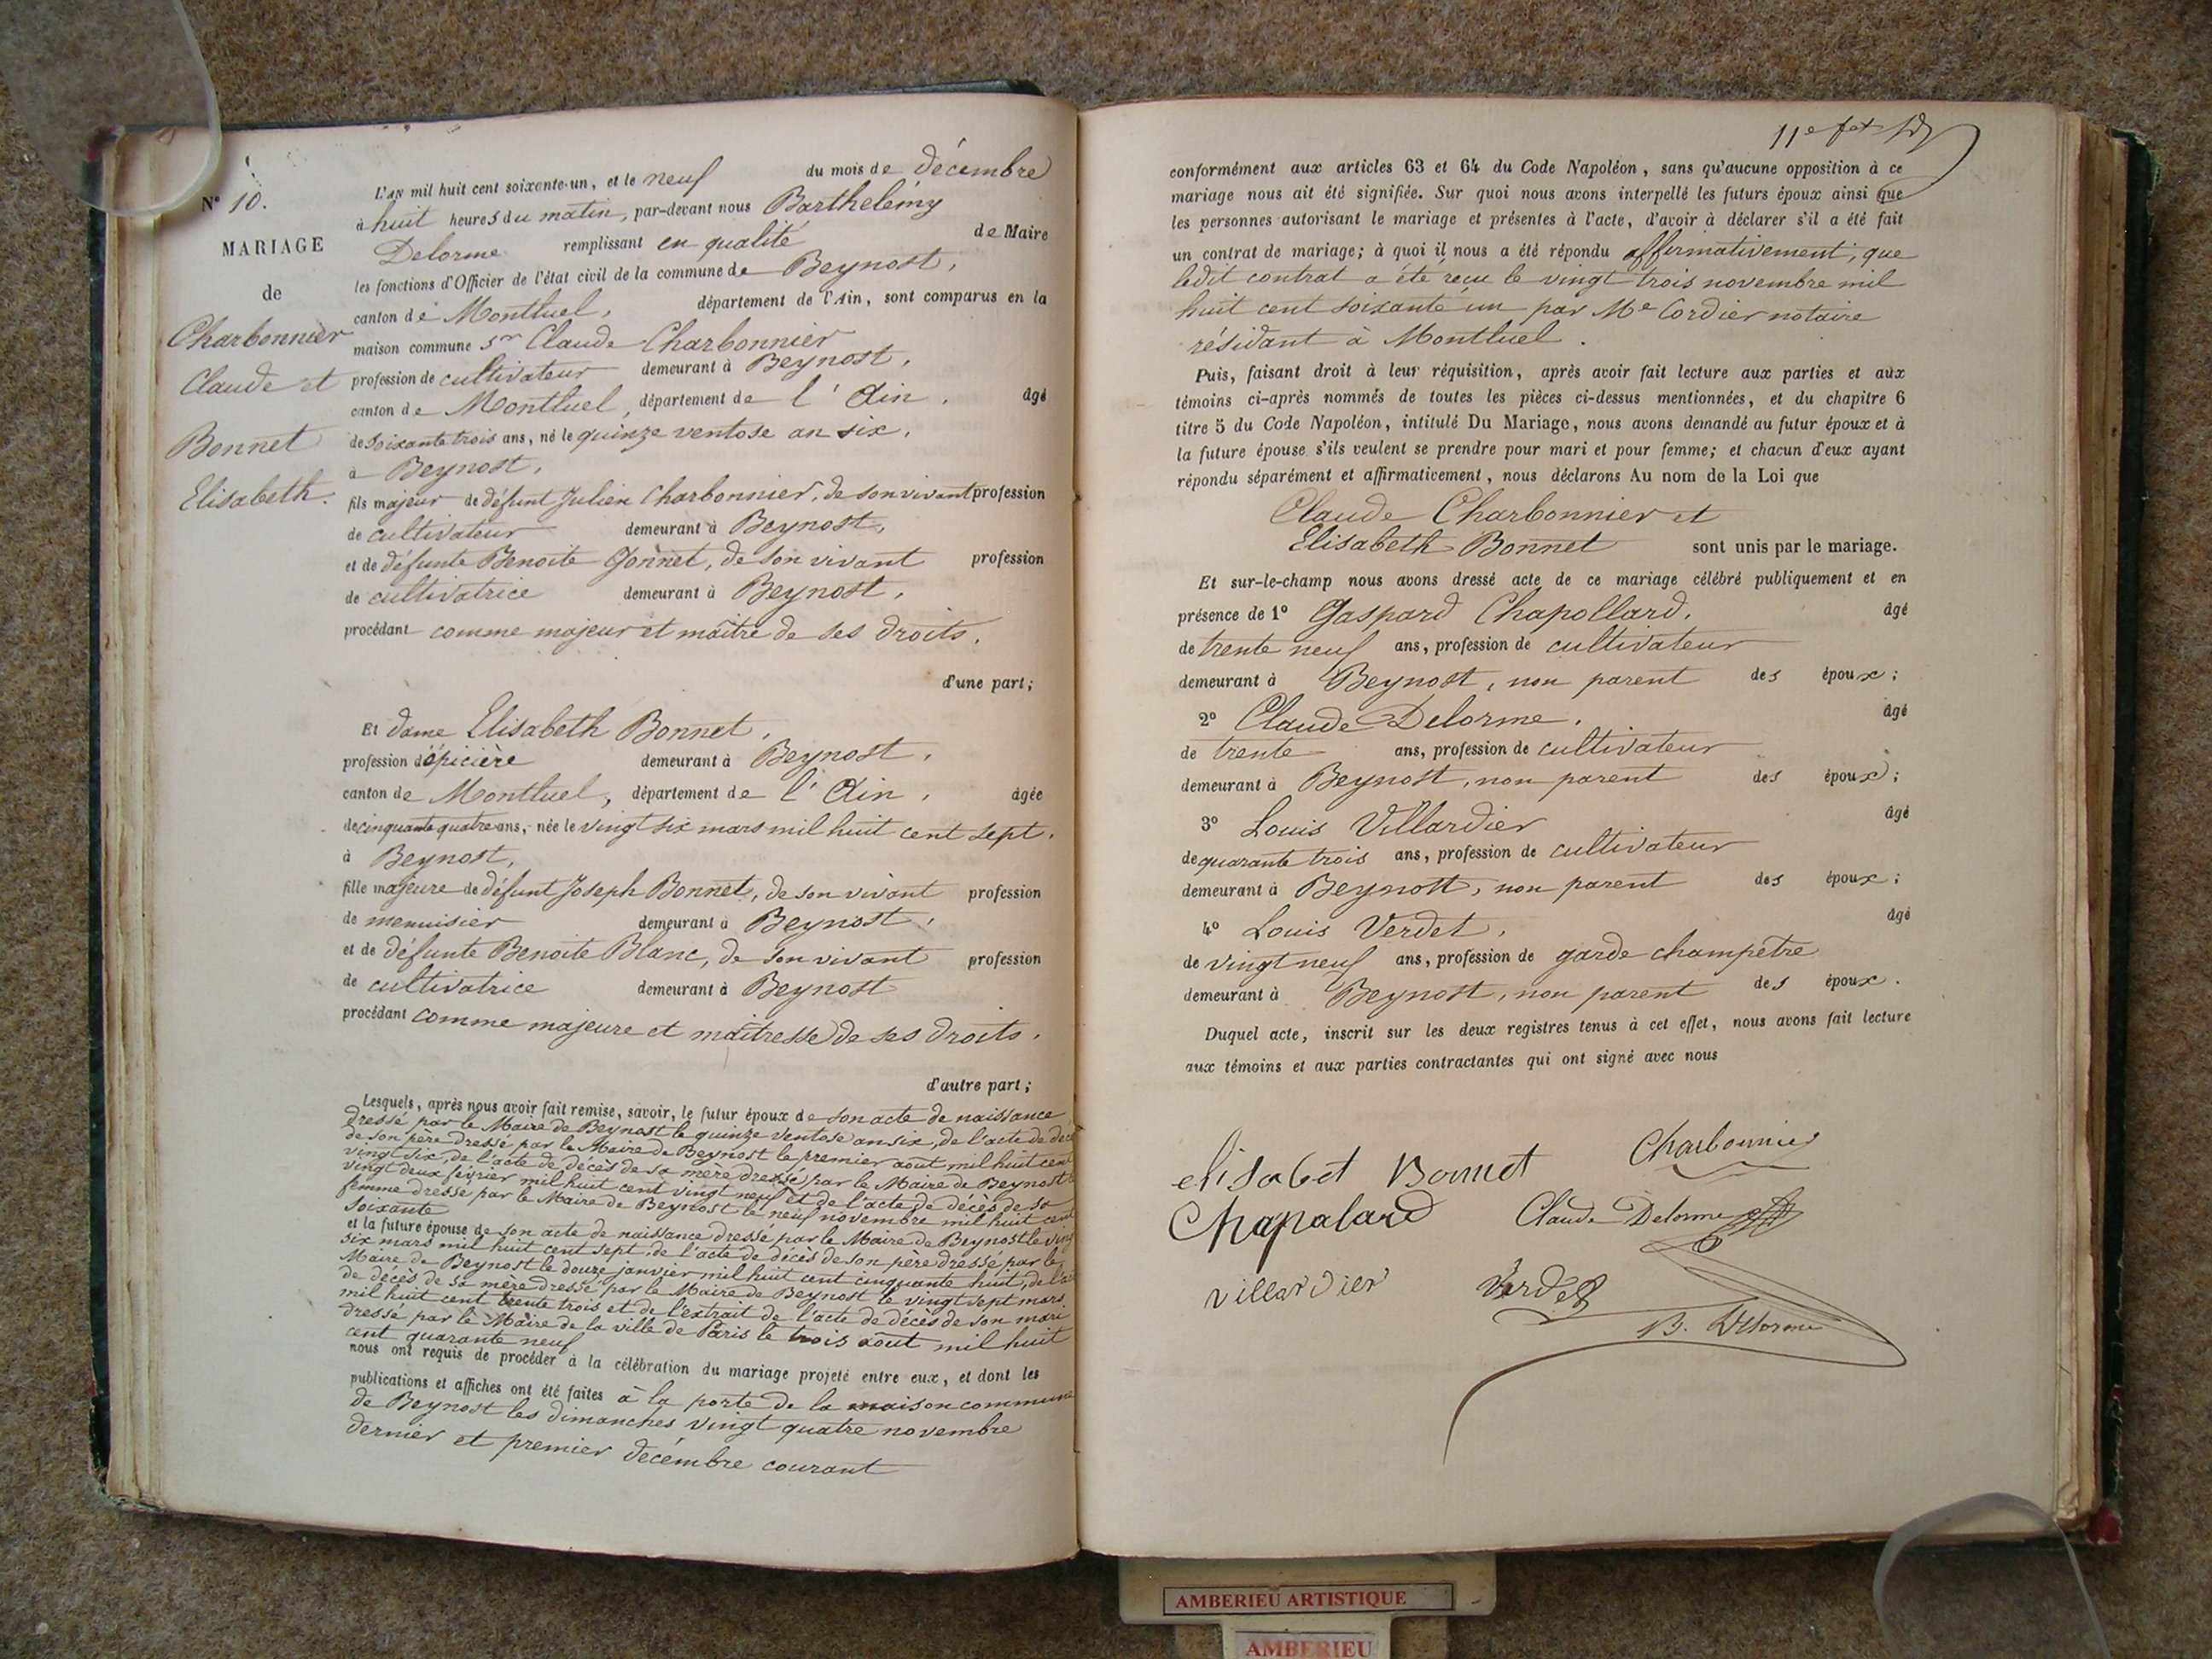 N° 10.
MARIAGE
de
Charbonnier
Claude et
Bonnet
Elisabeth.
L'AN mil huit cent soixante-un, et le neuf du mois de décembre
à huit heures du matin, par-devant nous Barthelémy
Delorme remplissant en qualité de Maire
les fonctions d'Officier de l'état civil de la commune de Beynost,
canton de Montluel, département de l'Ain, sont comparus en la
maison commune Sr Claude Charbonnier
profession de cultivateur demeurant à Beynost,
canton de Montluel, département de l'Ain, âgé
de soixante trois ans, né le quinze ventose an six,
à Beynost,
fils majeur de défunt Julien Charbonnier, de son vivant profession
de cultivateur demeurant à Beynost,
et de défunte Benoite Gonnet, de son vivant profession
de cultivatrice demeurant à Beynost,
procédant comme majeur et maître de ses droits.
d'une part;
Et dame Elisabeth Bonnet,
profession d'épicière demeurant à Beynost,
canton de Montluel, département de l'Ain, âgée
de cinquante quatre ans, née le vingt six mars mil huit cent sept,
à Beynost,
fille majeure de défunt Joseph Bonnet, de son vivant profession
de menuisier demeurant à Beynost,
et de défunte Benoite Blanc, de son vivant profession
de cultivatrice demeurant à Beynost
procédant comme majeure et maîtresse de ses droits.
d'autre part;
Lesquels, après nous avoir fait remise, savoir, le futur époux de son acte de naissance
dressé par le Maire de Beynost le quinze ventose an six, de l'acte de décè
de son père dressé par le Maire de Beynost le premier aout mil huit cent
vingt six, de l'acte de décès de sa mère dressé par le Maire de Beynost
vingt deux février mil huit cent vingt neuf et de l'acte de décès de sa
femme dressé par le Maire de Beynost le neuf novembre mil huit cent
soixante
et la future épouse de son acte de naissance dressé par le Maire de Beynost le vingt
six mars mil huit cent sept, de l'acte de décès de son père dressé par le
Maire de Beynost le douze janvier mil huit cent cinquante huit, de l'a
de décès de sa mère dressé par le Maire de Beynost le vingt sept mars
mil huit cent trente trois et de l'extrait de l'acte de décès de son mari
dressé par le Maire de la ville de Paris le trois aout mil huit
cent quarante neuf
nous ont requis de procéder à la célébration du mariage projeté entre eux, et dont les
publications et affiches ont été faites à la porte de la maison commune
de Beynost les dimanches vingt quatre novembre
dernier et premier décembre courant
11e
conformément aux articles 63 et 64 du Code Napoléon, sans qu'aucune opposition à ce
mariage nous ait été signifiée. Sur quoi nous avons interpellé les futurs époux ainsi que
les personnes autorisant le mariage et présentes à l'acte, d'avoir à déclarer s'il a été fait
un contrat de mariage; à quoi il nous a été répondu affirmativement, que
ledit contrat a été reçu le vingt trois novembre mil
huit cent soixante un par Me Cordier notaire
résidant à Montluel.
Puis, faisant droit à leur réquisition, après avoir fait lecture aux parties et aux
témoins ci-après nommés de toutes les pièces ci-dessus mentionnées, et du chapitre 6
titre 5 du Code Napoléon, intitulé Du Mariage, nous avons demandé au futur époux et à
la future épouse s'ils veulent se prendre pour mari et pour femme; et chacun d'eux ayant
répondu séparément et affirmativement, nous déclarons Au nom de la Loi que
Claude Charbonnier et
Elisabeth Bonnet sont unis par le mariage.
Et sur-le-champ nous avons dressé acte de ce mariage célébré publiquement et en
présence de 1° Gaspard Chapollard, âgé
de trente neuf ans, profession de cultivateur
demeurant à Beynost, non parent des époux;
2° Claude Delorme, âgé
de trente ans, profession de cultivateur
demeurant à Beynost, non parent des époux;
3° Louis Villardier âgé
de quarante trois ans, profession de cultivateur
demeurant à Beynost, non parent des époux;
4° Louis Verdet, âgé
de vingt neuf ans, profession de garde champêtre
demeurant à Beynost, non parent des époux.
Duquel acte, inscrit sur les deux registres tenus à cet effet, nous avons fait lecture
aux témoins et aux parties contractantes qui ont signé avec nous
elisabet Bonnet Charbonnier
Chapalard Claude Delorme
villardier Verdet
B. Delorme
AMBERIEU ARTISTIQUE
AMBERIEU